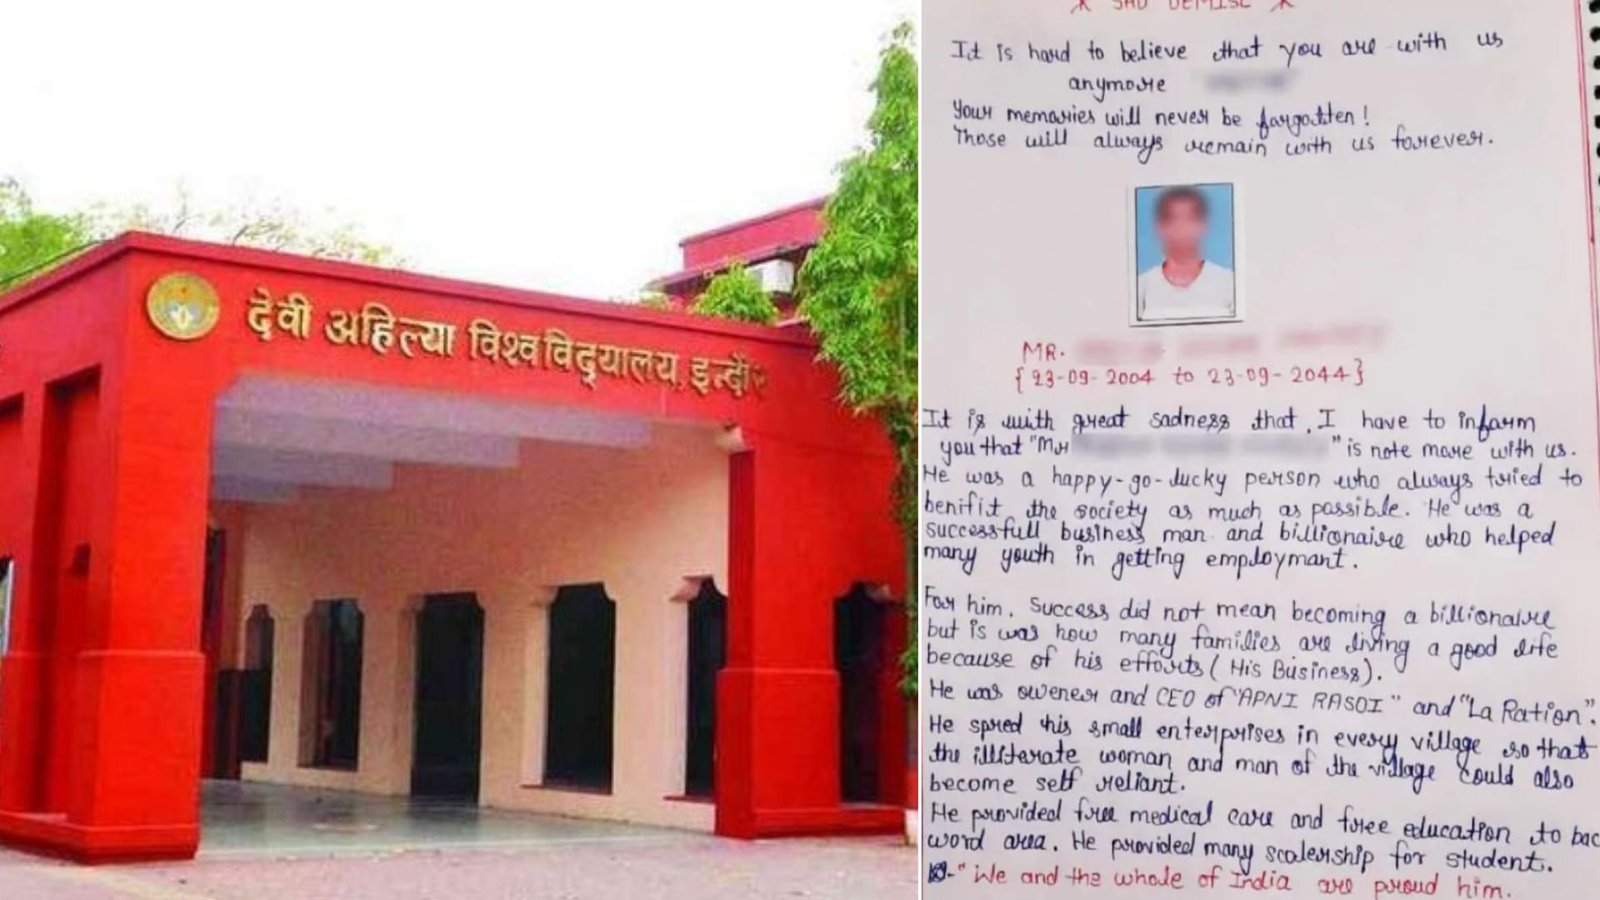 देवी अहिल्या विश्वविद्यालय, इन्दौर
SAD DEMISE
It is hard to believe that you are with us
anymore
Your memories will never be forgotten!
Those will always remain with us forever.
MR.
{23-09-2004 to 23-09-2044}
It is with great sadness that, I have to inform
you that "Mr " is note more with us.
He was a happy-go-lucky person who always tried to
benifit the society as much as possible. He was a
successfull business man and billionaire who helped
many youth in getting employmant.
For him, success did not mean becoming a billionaire
but is was how many families are living a good life
because of his efforts (His Business).
He was owener and CEO of "APNI RASOI" and "La Ration".
He spred his small enterprises in every village so that
the illiterate woman and man of the village could also
become self reliant.
He provided free medical care and free education to bac
word area. He provided many scalership for student.
"We and the whole of India are proud him.